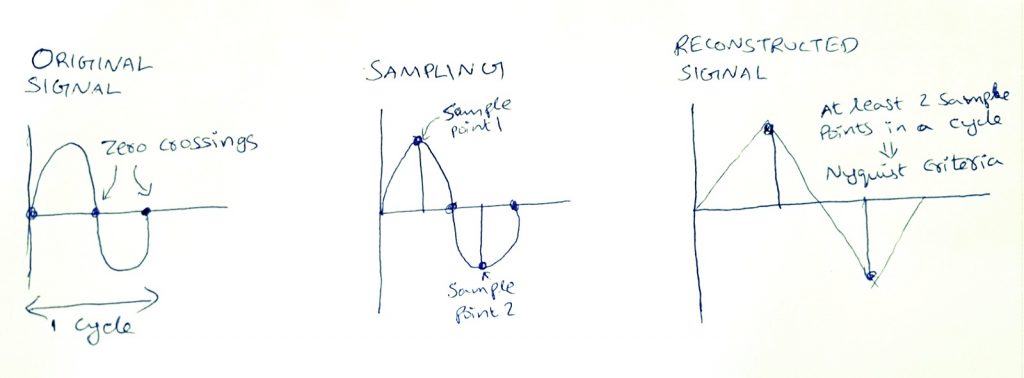 ORIGINAL
SIGNAL
Zero crossings
1 cycle
SAMPLING
Sample
point 1
Sample
point 2
RECONSTRUCTED
SIGNAL
At least 2 Sample
Points in a cycle
Nyquist criteria